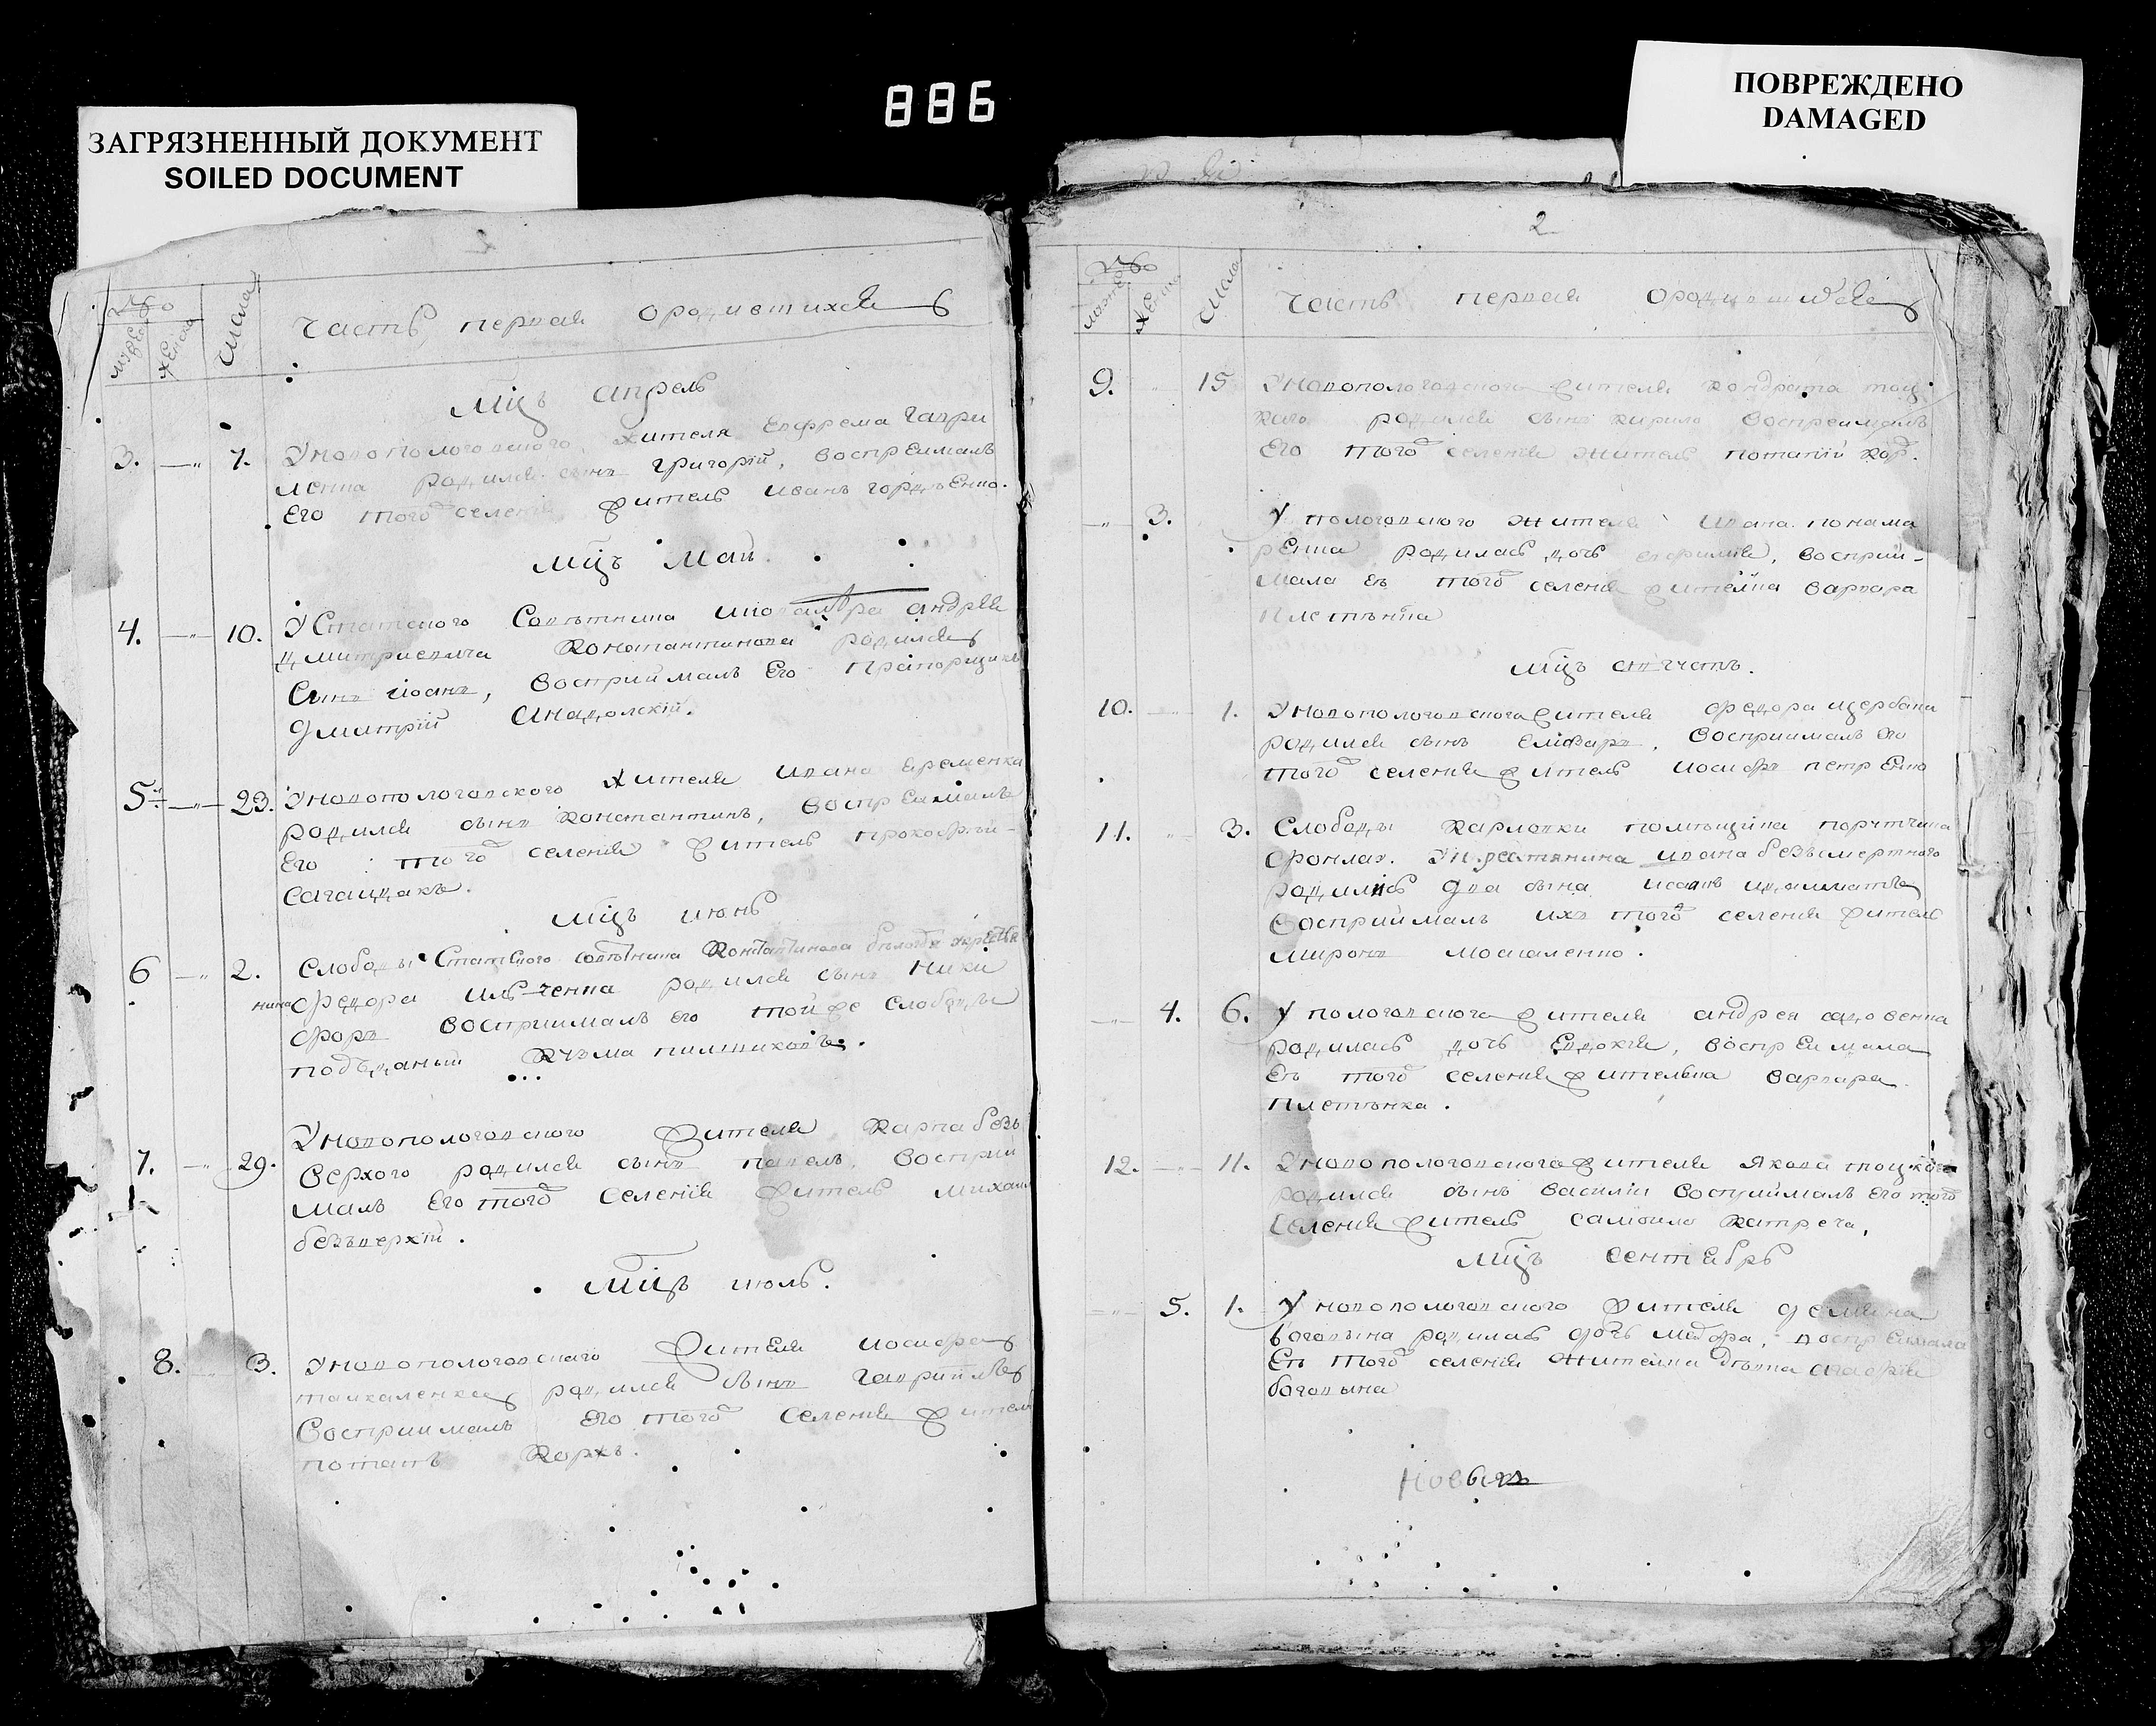 886
ЗАГРЯЗНЕННЫЙ ДОКУМЕНТ
SOILED DOCUMENT
ПОВРЕЖДЕНО
DAMAGED
Часть первая ородившихся
Мцъ апрель
3. 7. Уновопологовского жителя Евфрема гаври
ленка родился сынъ григорій, воспреималъ
Его того селенія житель иванъ гордѣенко.
Мцъ май.
4. 10. УСтатского Советника Андрея
дмитриевича Константинова родился
Сынъ іоанъ, восприималъ Его Прапорщикъ
дмитрій Анадолскій.
5 23. Уновопологовского жителя ивана Яременка
родился сынъ Константинъ, воспреималъ
Его того селенія житель прокофій
Сагаидакъ.
Мцъ июнь
6 2. Слободы Статского советника Константинова
нина федора ильченка родился сынъ Ники
форъ восприималъ его той же слободы
подъданый Кузма
7. 29. Уновопологовского жителя Карпа безъ
верхого родился сынъ павелъ, восприи
малъ Его того селенія житель михаил
безъверхій.
Мцъ июль.
8. 3. Уновопологовского жителя иосифа
родился сынъ гавриилъ
Восприималъ его того селенія жител
потапъ Коржъ.
2
Часть первая ородившихся
9. 15 Уновопологовского жителя кондрата тоц
каго родился сынъ кирило воспреималъ
Его того селенія житель потапій кор.
3. У пологовского жителя ивана понама
ренка родилась дочь евфимія, восприи-
мала ея того селенія жителка варвара
плетѣнка
мцъ августъ.
10. 1. Уновопологовского жителя федора щербака
родился сынъ Еліазаръ, восприималъ его
того селенія житель иосифъ петренко
11. 3. Слободы Карловки помещика порутчика
ивана безъсмертного
родились два сына исаакъ
восприималъ ихъ того селенія житель
миронъ москаленко.
4. 6. У пологовского жителя андрея
родилась дочь Евдокія, воспреимала
Ея того селенія жителка варвара
плетѣнка.
12. 11. Уновопологовского жителя Якова тоцкого
родился сынъ василій восприималъ его того
селенія житель самоило Катреча,
мцъ сентябрь
5. 1. У новопологовского жителя демяна
богодына родилась дочь , воспреимала
Ея того селенія жителка дѣвка агафія
богодына